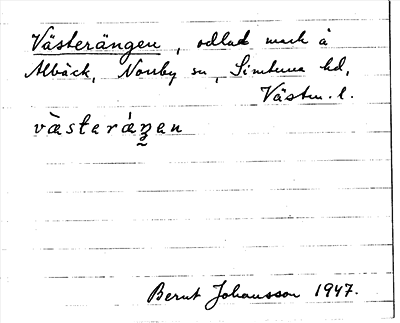 Västerängen, odlad mark å
Albäck, Norrby sn, Simtuna hd,
Västm. l.
västeräŋen
Bernt Johansson 1947.